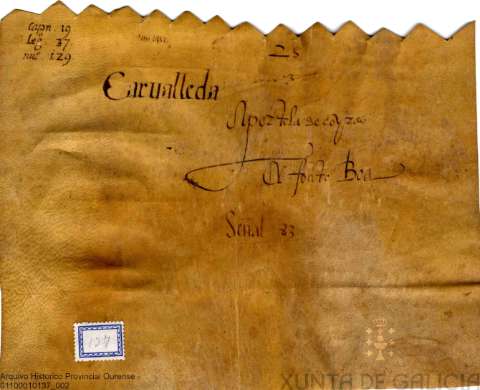 Cajon. 19
leg. 37
nu. 129
23
Carualleda
Aportela de
A fonte Boa
Señal 23
137
Arquivo Histórico Provincial Ourense -
01100010137_002
XUNTA DE GALICIA